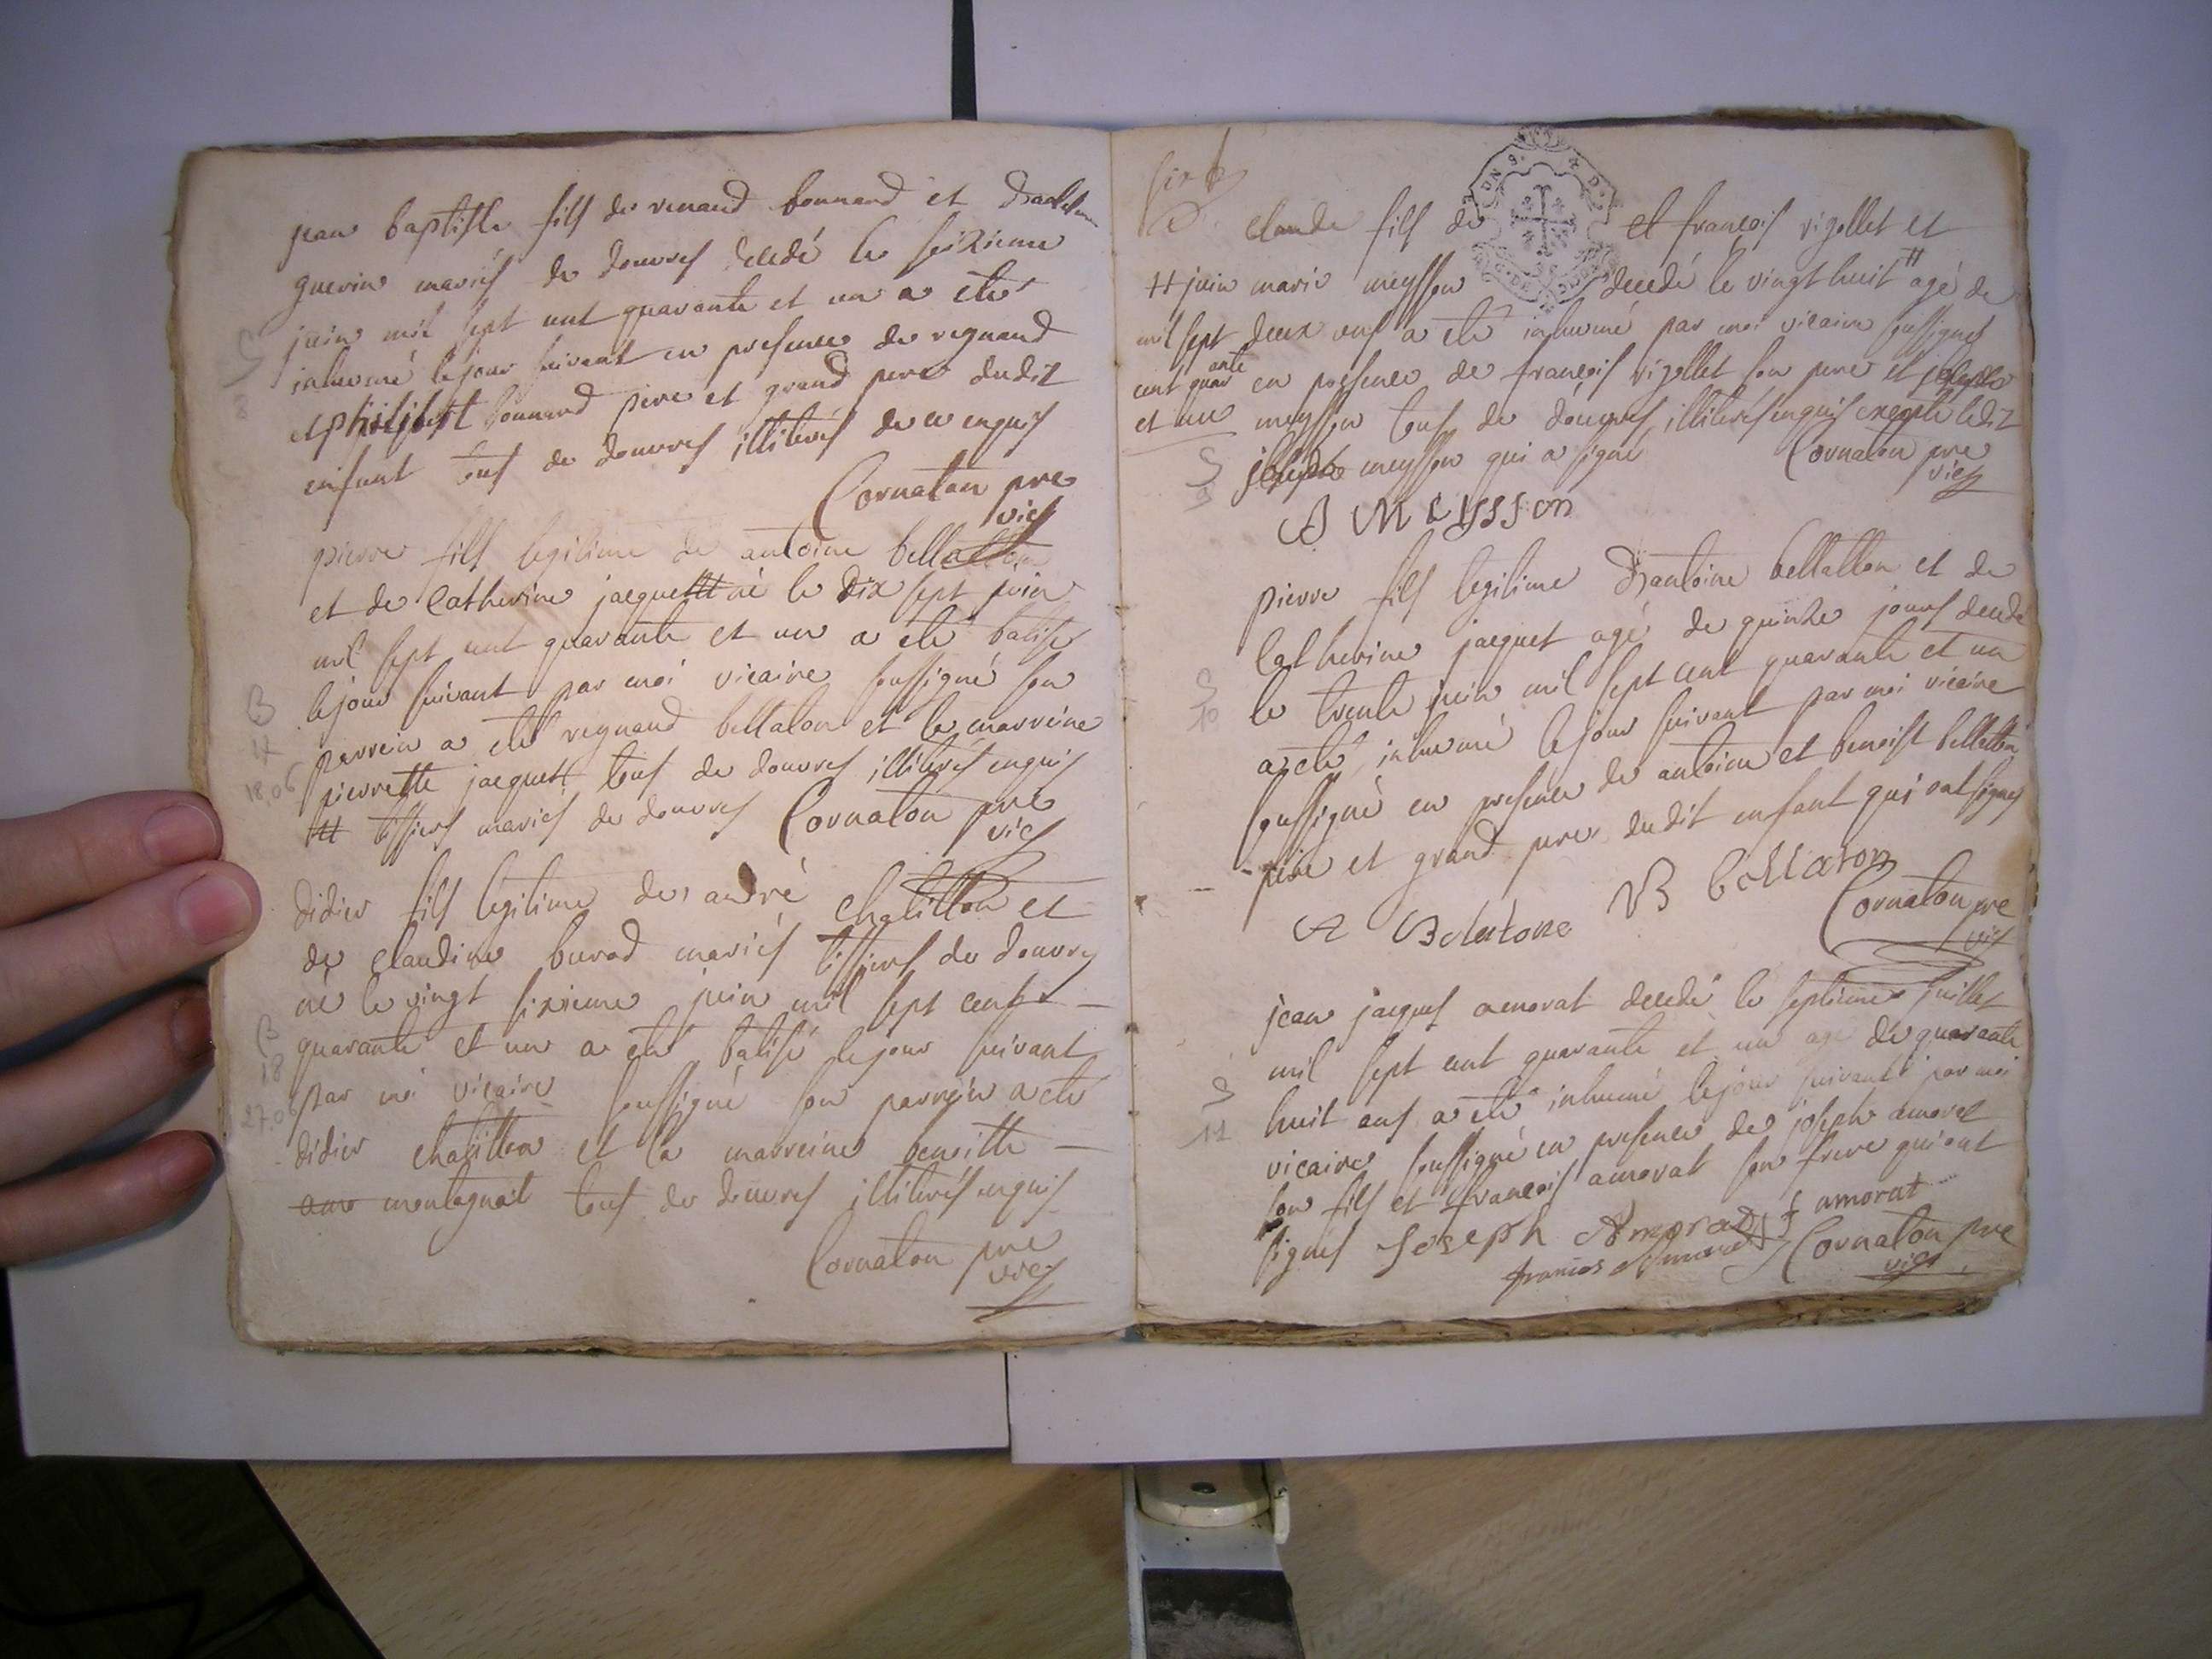 jean baptiste fils de renaud bonnard et
guerin mariés de douvres decedé le seizieme
juin mil sept cent quarante et un a eté
inhumé le jour suivant en presence de reynaud
et bonnard pere et grand pere dudit
enfant tous de douvres illiterés de ce enquis
Cornaton pre
vic
pierre fils legitime de antoine bellatton
et de Catherine jacquett né le dix sept juin
mil sept cent quarante et un a eté batisé
le jour suivant par moi vicaire soussigné son
parrein a eté reynaud bellaton et la marreine
pierrette jacquett tous de douvres illiterés enquis
# tissiers mariés de douvres Cornaton pre
vic
B
17
18.06
didier fils legitime de andré chatillon et
de claudine burod mariés tissiers de douvres
né le vingt sixieme juin mil sept cent
quarante et un a eté batisé le jour suivant
par moi vicaire soussigné son parrein a eté
didier chatillon et la marreine benoitte
montagnat tous de douvres illiterés enquis
Cornaton pre
vic
B
18
27.0
six
claude fils de et françois rigollet et
# juin marie meysson decedé le vingt huit # agé de
mil sept deux ans a eté inhumé par moi vicaire soussigné
cent quarante en presence de françois rigollet son pere et
et un meysson tous de douvres illiterés enquis excepté ledit
meysson qui a signé Cornaton pre
vic
S
9
B Meysson
pierre fils legitime d'antoine bellatton et de
Catherine jacquet agé de quinze jours decedé
le trente juin mil sept cent quarante et un
a eté inhumé le jour suivant par moi vicaire
soussigné en presence de antoine et benoist bellatton
pere et grand pere dudit enfant qui ont signés
S
10
A Belatone B bellaton
Cornaton pre
vic
jean jacques amorat decedé le septieme juillet
mil sept cent quarante et un agé de quarante
huit ans a eté inhumé le jour suivant par moi
vicaire soussigné en presence de joseph amorat
son fils et françois amorat son frere qui ont
signés Joseph Amorad f amorat
S
11
francois Cornaton pre
vic